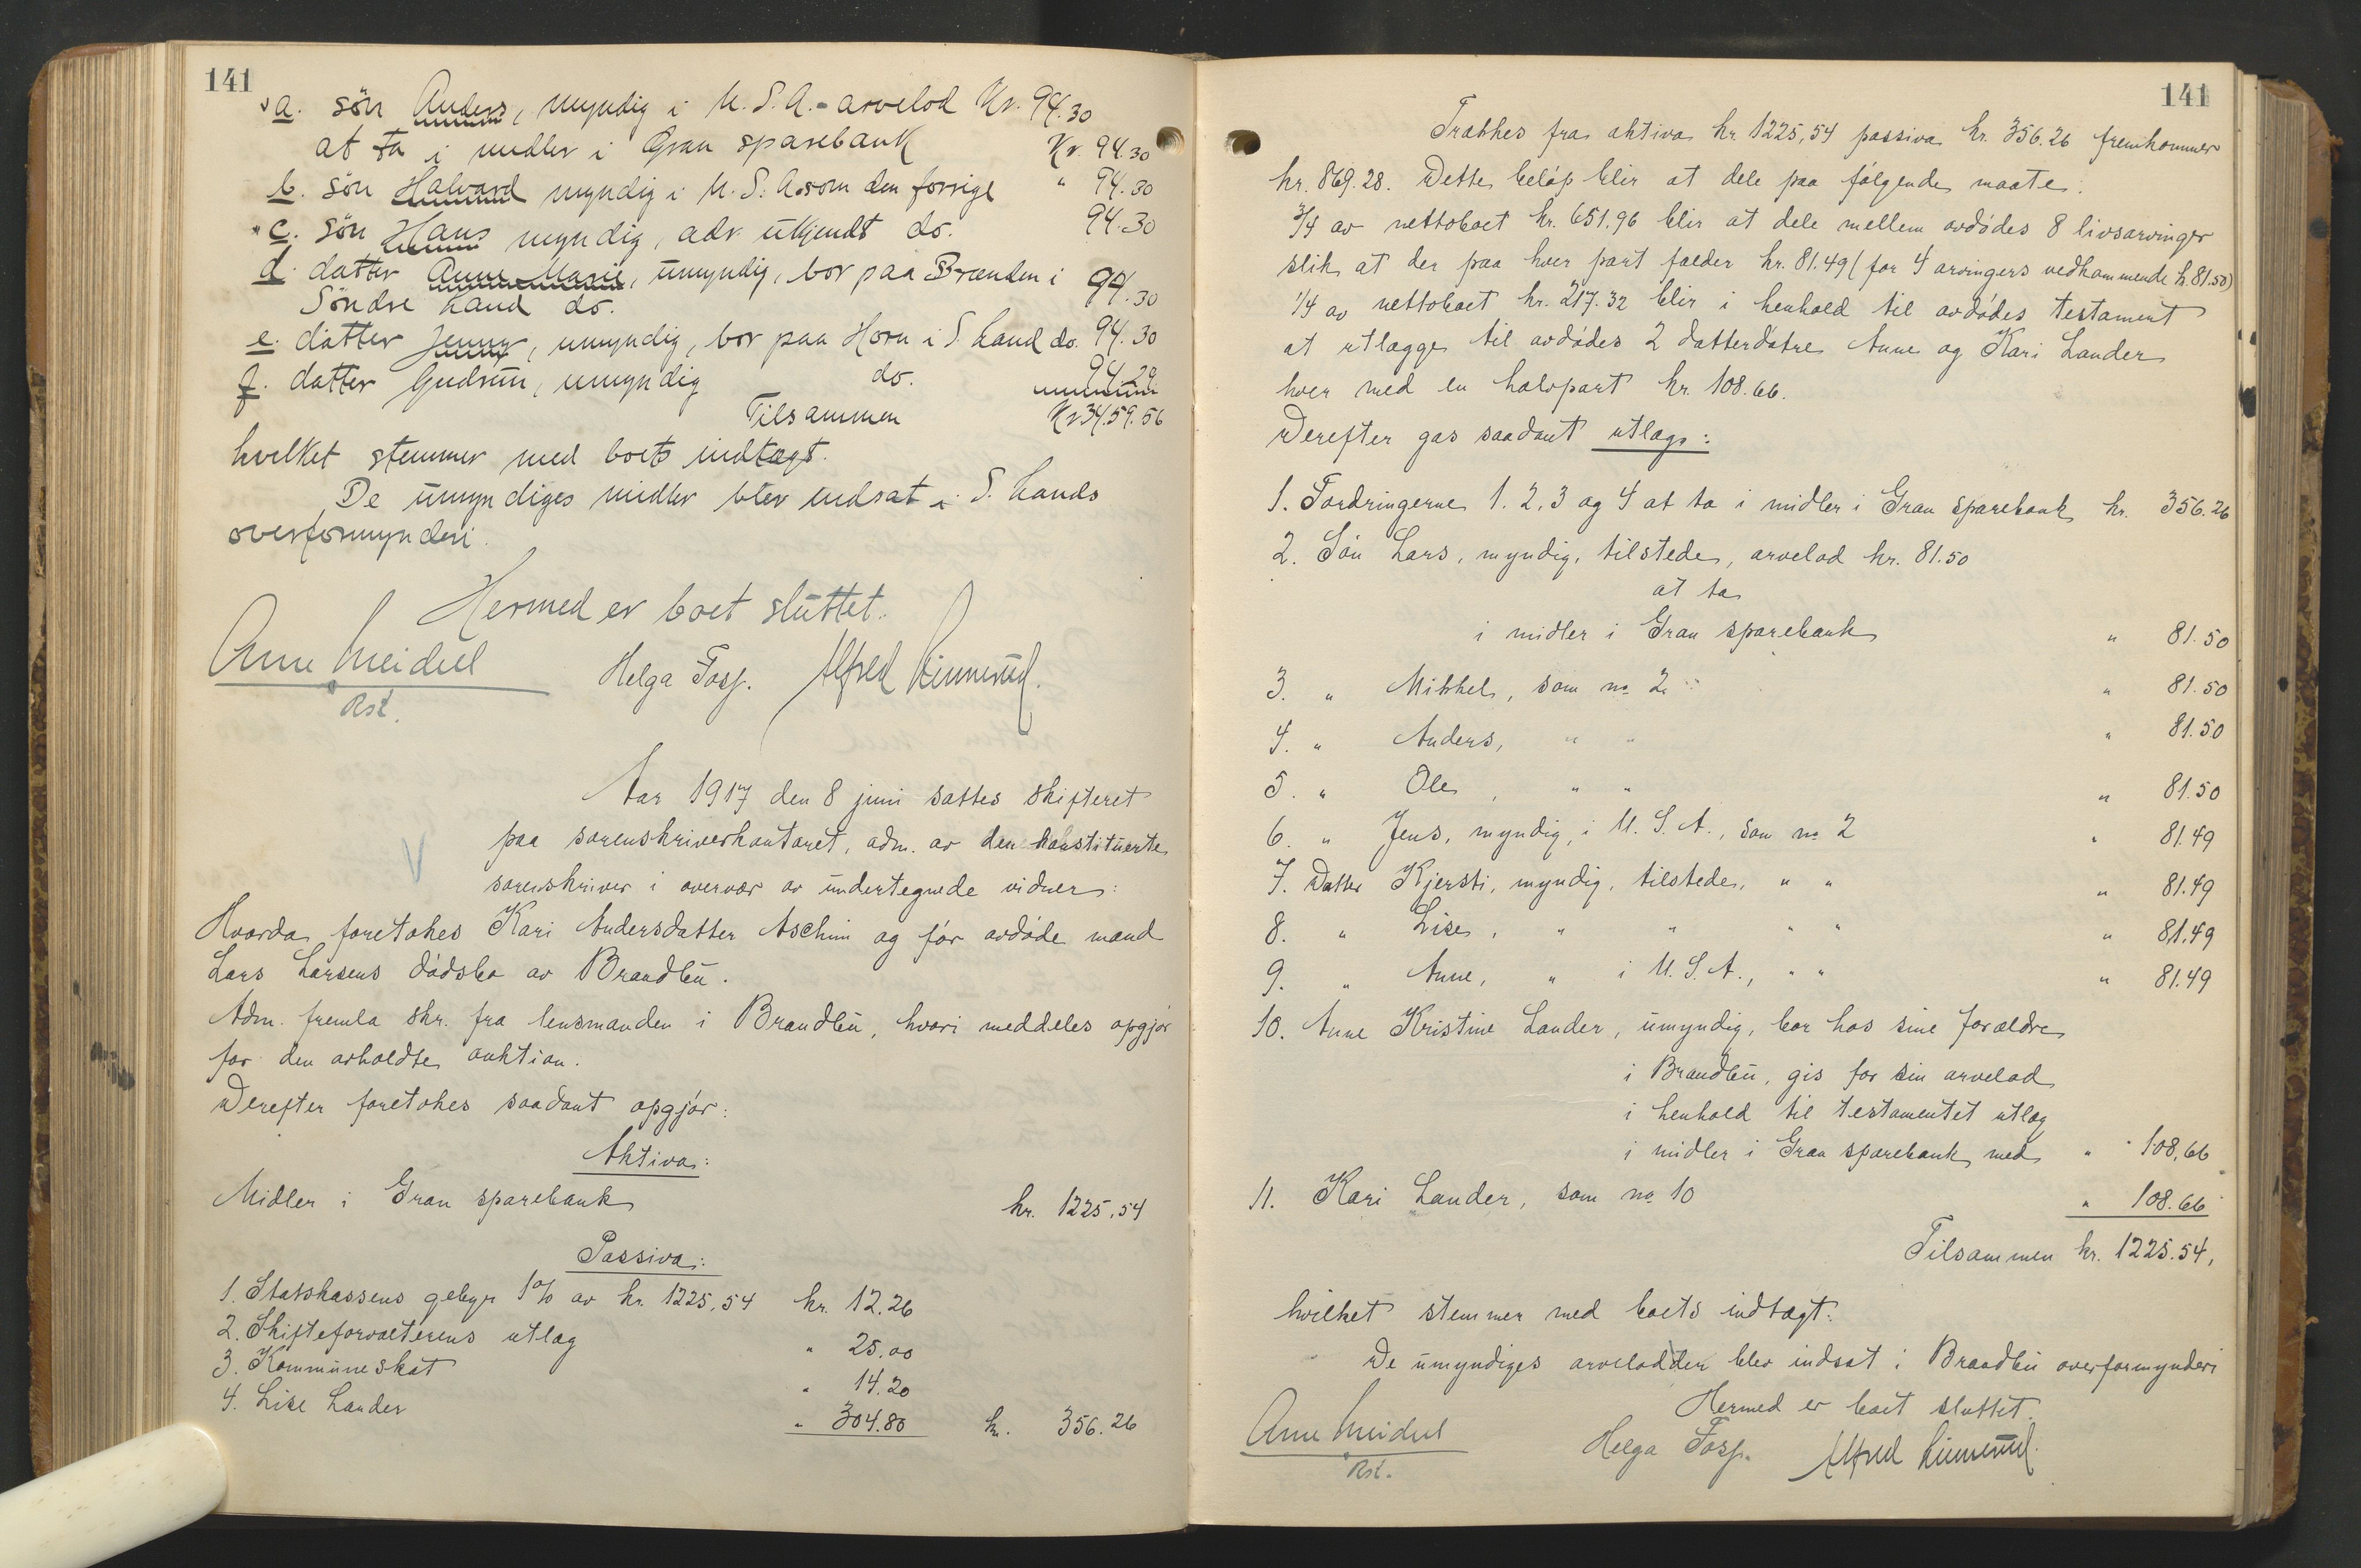 141
a. søn Anders, myndig i U.S.A. - arvelod Kr. 94.30
at ta i midler i Gran sparebank Kr. 94.30
b. søn Halvard myndig i U.S.A. som den forrige " 94.30
c. søn Hans myndig, adr. utkjendt do. 94.30
d. datter Anne Marie, umyndig, bor paa Brænden i
Søndre Land do. 94.30
e. datter Jenny, umyndig, bor paa Horn i S. Land do. 94.30
f. datter Gudrun, umyndig do. 94.29
Tilsammen Kr 3459.56
hvilket stemmer med boets indtægt.
De umyndiges midler blev indsat i S. Lands
overformynderi.
Hermed er boet sluttet.
Helga Fosp. Alfred
Aar 1917 den 8 juni sattes skifteret
paa sorenskriverkontoret, adm. av den konstituerte
sorenskriver i overvær av undertegnede vidner:
Hvorda foretokes Kari Andersdatter Aschim og før avdøde mand
Lars Larsens dødsbo av Brandbu.
Adm. fremla skr. fra lensmanden i Brandbu, hvori meddeles opgjør
for den avholdte auktion.
Derefter foretokes saadant opgjør:
Aktiva:
Midler i Gran sparebank kr. 1225,54
Passiva:
1. Statskassens gebyr 1% av kr. 1225,54 kr. 12.26
2. Skifteforvalterens utlæg " 25.00
3. Kommuneskat " 14.20
4. Lise Lander " 304.80 kr. 356.26
141
Trækkes fra aktiva kr. 1225,54 passiva kr. 356.26 fremkommer
kr. 869.28. Dette beløp blir at dele paa følgende maate:
3/4 av nettoboet kr. 651.96 blir at dele mellem avdødes 8 livsarvinger
slik at der paa hver part falder kr. 81.49 (for 4 arvingers vedkommende k. 81.50)
1/4 av nettoboet kr. 217.32 blir i henhold til avdødes testament
at utlægge til avdødes 2 datterdøtre Anne og Kari Lander
hver med en halvpart kr. 108.66.
Derefter gas saadant utlæg:
1. Fordringerne 1. 2. 3 og 4 at ta i midler i Gran sparebank kr. 356.26
2. Søn Lars, myndig, tilstede, arvelod kr. 81.50
at ta
i midler i Gran sparebank " 81.50
3. " Mikkel, som no 2 " 81.50
4. " Anders, " " " 81.50
5. " Ole, " " " 81.50
6. " Jens, myndig, i U.S.A., som no 2 " 81.49
7. Datter Kjersti, myndig, tilstede, " " " 81.49
8. " Lise, " " " " " 81.49
9. " Anne, " i U.S.A., " " " 81.49
10. Anne Kristine Lander, umyndig, bor hos sine forældre
i Brandbu, gis for sin arvelod
i henhold til testamentet utlæg
i midler i Gran sparebank med " 108,66
11. Kari Lander, som no 10 " 108.66
Tilsammen kr. 1225.54,
hvilket stemmer med boets indtægt.
De umyndiges arvelodder blev indsat i Brandbu overformynderi
Hermed er boet sluttet.
Helga Fosp. Alfred